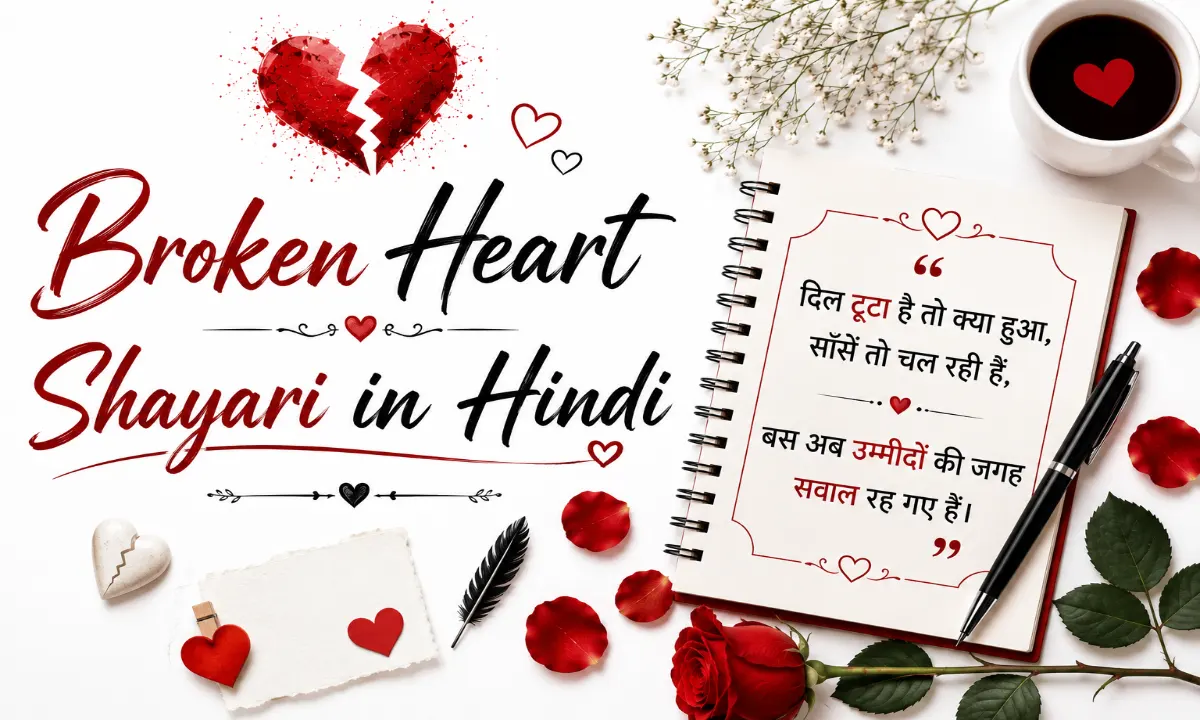 Broken Heart
Shayari in Hindi
“
दिल टूटा है तो क्या हुआ,
साँसें तो चल रही हैं,
बस अब उम्मीदों की जगह
सवाल रह गए हैं।
”